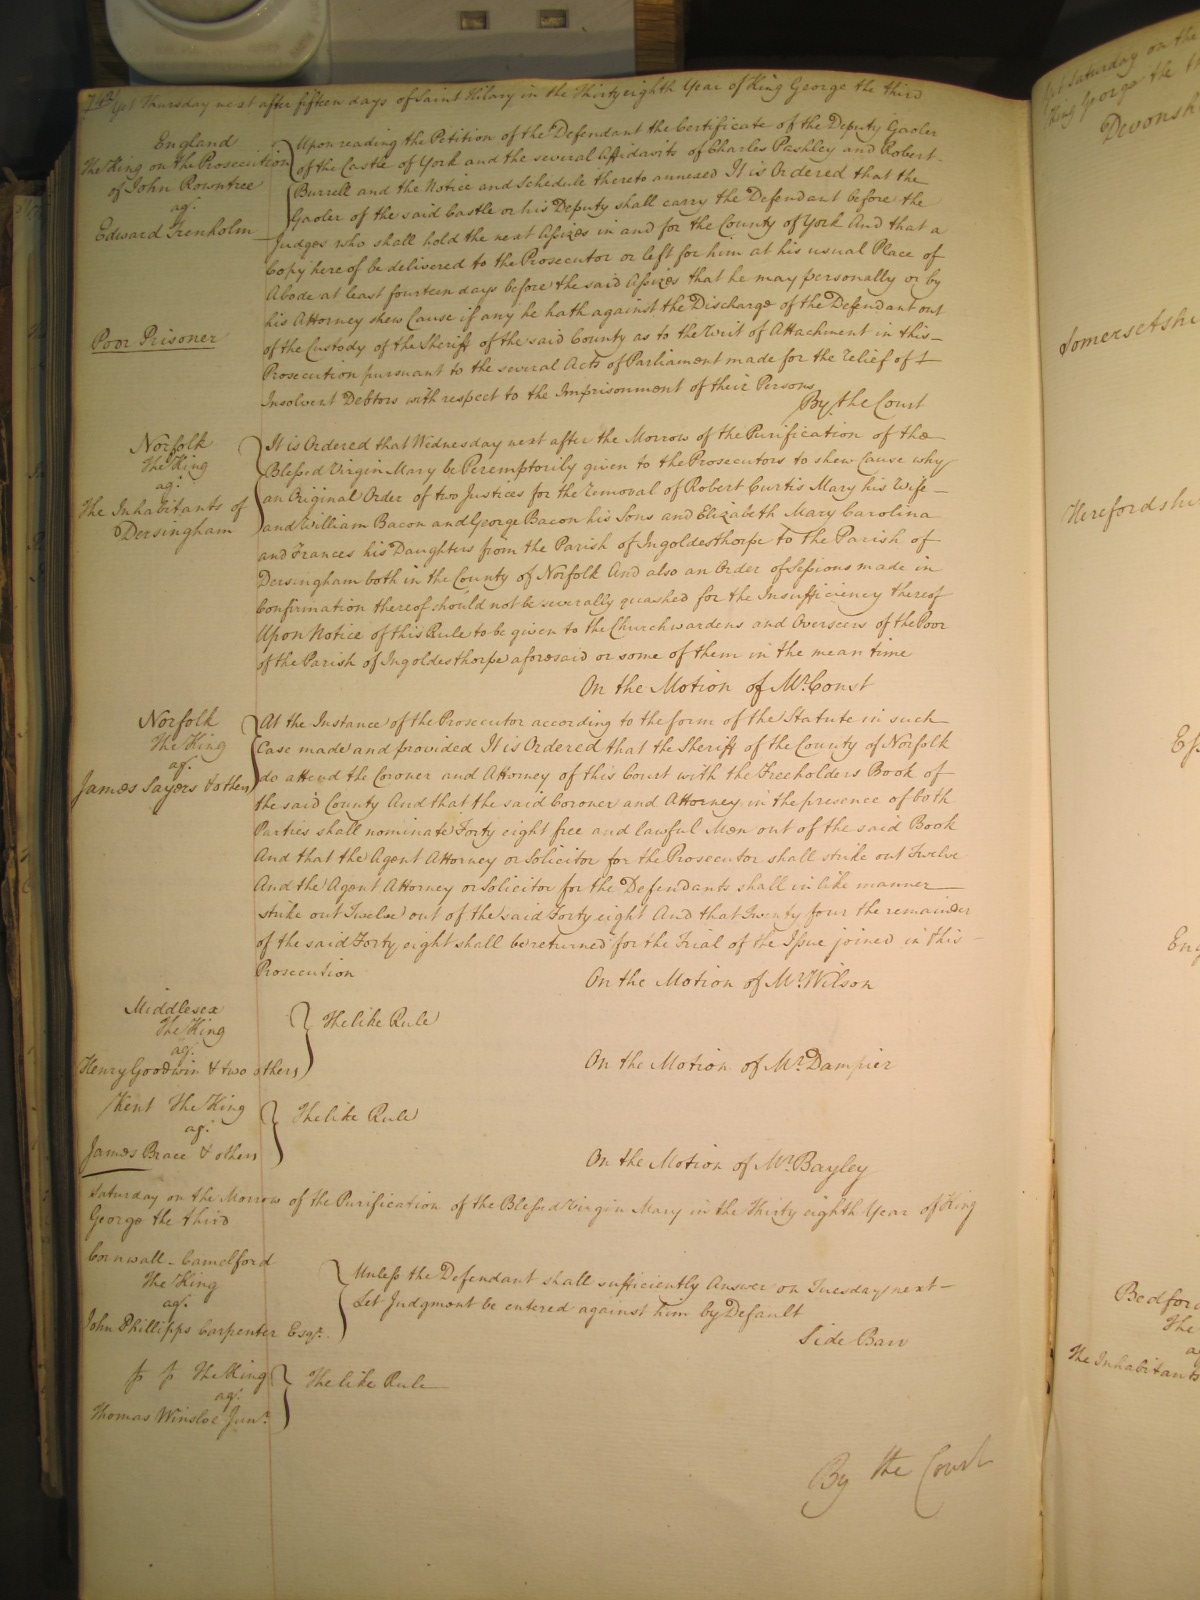 Yet Thursday next after fifteen days of Saint Hilary in the Thirty eighth Year of King George the third
England
The King on the Prosecution
of John Rowntree
agt.
Edward Trenholm
Poor Prisoner
Upon reading the Petition of the Defendant the Certificate of the Deputy Gaoler
of the Castle of York and the several Affidavits of Charles Pashley and Robert
Burrell and the Notice and Schedule thereto annexed It is Ordered that the
Gaoler of the said Castle or his Deputy shall carry the Defendant before the
Judges who shall hold the next Assizes in and for the County of York And that a
Copy hereof be delivered to the Prosecutor or left for him at his usual Place of
Abode at least fourteen days before the said Assizes that he may personally or by
his Attorney shew Cause if any he hath against the Discharge of the Defendant out
of the Custody of the Sheriff of the said County as to the Writ of Attachment in this
Prosecution pursuant to the several Acts of Parliament made for the relief of
Insolvent Debtors with respect to the Imprisonment of their Persons
By the Court
Norfolk
The King
agt.
The Inhabitants of
Dersingham
It is Ordered that Wednesday next after the Morrow of the Purification of the
Blessed Virgin Mary be Peremptorily given to the Prosecutors to shew Cause why
an Original Order of two Justices for the Removal of Robert Curtis Mary his Wife
and William Bacon and George Bacon his Sons and Elizabeth Mary Carolina
and Frances his Daughters from the Parish of Ingoldesthorpe to the Parish of
Dersingham both in the County of Norfolk And also an Order of Sessions made in
Confirmation thereof should not be severally quashed for the Insufficiency thereof
Upon Notice of this Rule to be given to the Churchwardens and Overseers of the Poor
of the Parish of Ingoldesthorpe aforesaid or some of them in the mean time
On the Motion of Mr. Const
Norfolk
The King
agt.
James Sayers & others
At the Instance of the Prosecutor according to the form of the Statute in such
Case made and provided It is Ordered that the Sheriff of the County of Norfolk
do attend the Coroner and Attorney of this Court with the Freeholders Book of
the said County And that the said Coroner and Attorney in the presence of both
Parties shall nominate Forty eight free and lawful Men out of the said Book
And that the Agent Attorney or Solicitor for the Prosecutor shall strike out Twelve
And the Agent Attorney or Solicitor for the Defendants shall in like manner
strike out Twelve out of the said Forty eight And that Twenty four the remainder
of the said Forty eight shall be returned for the Trial of the Issue joined in this
Prosecution
On the Motion of Mr. Wilson
Middlesex
The King
agt.
Henry Goodwin & two others
The like Rule
On the Motion of Mr. Dampier
Kent The King
agt.
James Brace & others
The like Rule
On the Motion of Mr. Bayley
Saturday on the Morrow of the Purification of the Blessed Virgin Mary in the Thirty eighth Year of King
George the third
Cornwall - Camelford
The King
agt.
John Phillipps Carpenter Esqr.
Unless the Defendant shall sufficiently Answer on Tuesday next
Let Judgment be entered against him by Default
Side Barr
The King
agt.
Thomas Winsloe Junr.
The like Rule
By the Court
Saturday on the
King George the
Devonsh
Somersetshi
Herefordshi
Ess
Eng
Bedford
The
a
The Inhabitants